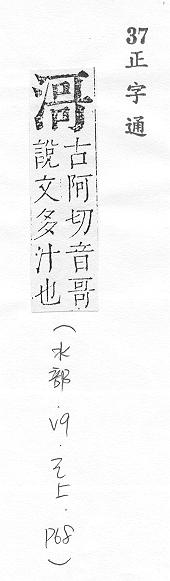 37 正字通
滒
古阿切音哥
說文多汁也
(水部.V9.巳上.P68)